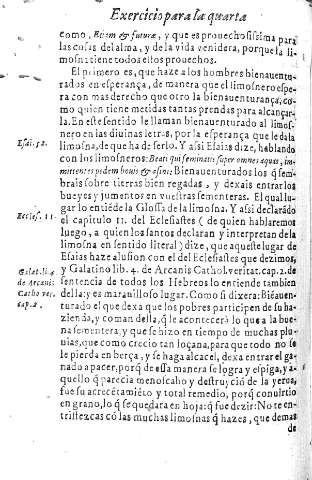 Exercicio para la quarta
como, Etiam & futuræ, y que es prouechosissima para
las cosas del alma, y de la vida venidera, porque la li-
mosna tiene todos estos prouechos.
El primero es, que haze a los hombres bienauentu-
rados en esperança, de manera que el limosnero espe-
ra con mas derecho que otro la bienauenturança, co-
mo quien tiene metidas tantas prendas para alcançar-
la. En este sentido le llaman bienauenturado al limos-
nero en las diuinas letras, por la esperança que le da la
Esai. 32.
limosna, de que ha de serlo. Y assi Esaias dize, hablando
con los limosneros: Beati qui seminatis super omnes aquas, im-
mittentes pedem bouis & asini: Bienauenturados los q̃ sem-
brais sobre tierras bien regadas, y dexais entrar los
bueyes y jumentos en vuestras sementeras. El qual lu-
gar lo entiẽde la Glossa de la limosna. Y assi declarãdo
Eccles. 11.
el capitulo 11. del Eclesiastes (de quien hablaremos
luego, a quien los santos declaran y interpretan de la
limosna en sentido literal) dize, que aqueste lugar de
Esaias haze alusion con el del Eclesiastes que dezimos,
Galat. li. 4.
de Arcanis
Catho ver.
cap. 2.
y Galatino lib. 4. de Arcanis Cathol. veritat. cap. 2. de
sentencia de todos los Hebreos lo entiende tambien
della: y es marauilloso lugar. Como si dizera: Biẽauen-
turado el que dexa que los pobres participen de su ha-
zienda, y coman della, q̃ le acontecerà lo que a la bue-
na sementera, y que se hizo en tiempo de muchas plu-
uias, que como crecio tan loçana, para que todo no se
le pierda en berça, y se haga alcacel, dexa entrar el ga-
nado a pacer, porq̃ de essa manera se logra y espiga, y a-
quello q̃ parecia menoscabo y destruyciõ de la yerua,
fue su acrecẽtamiẽto y total remedio, porq̃ conuirtio
en grano, lo q̃ se quedara en hoja: q̃ fue dezir: No te en-
tristezcas cõ las muchas limosnas q̃ hazes, que demas
de